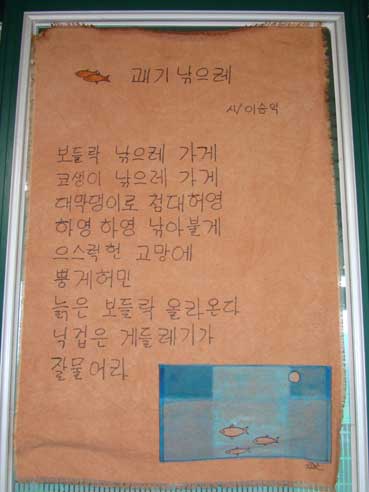 괘기 낚으레
시/이승익
보들락 낚으레 가게
코생이 낚으레 가게
대막댕이로 첨대허영
하영 하영 낚아불게
으스락헌 고망에
뽕게허민
늙은 보들락 올라온다
닉겁은 게들레기가
잘물어라